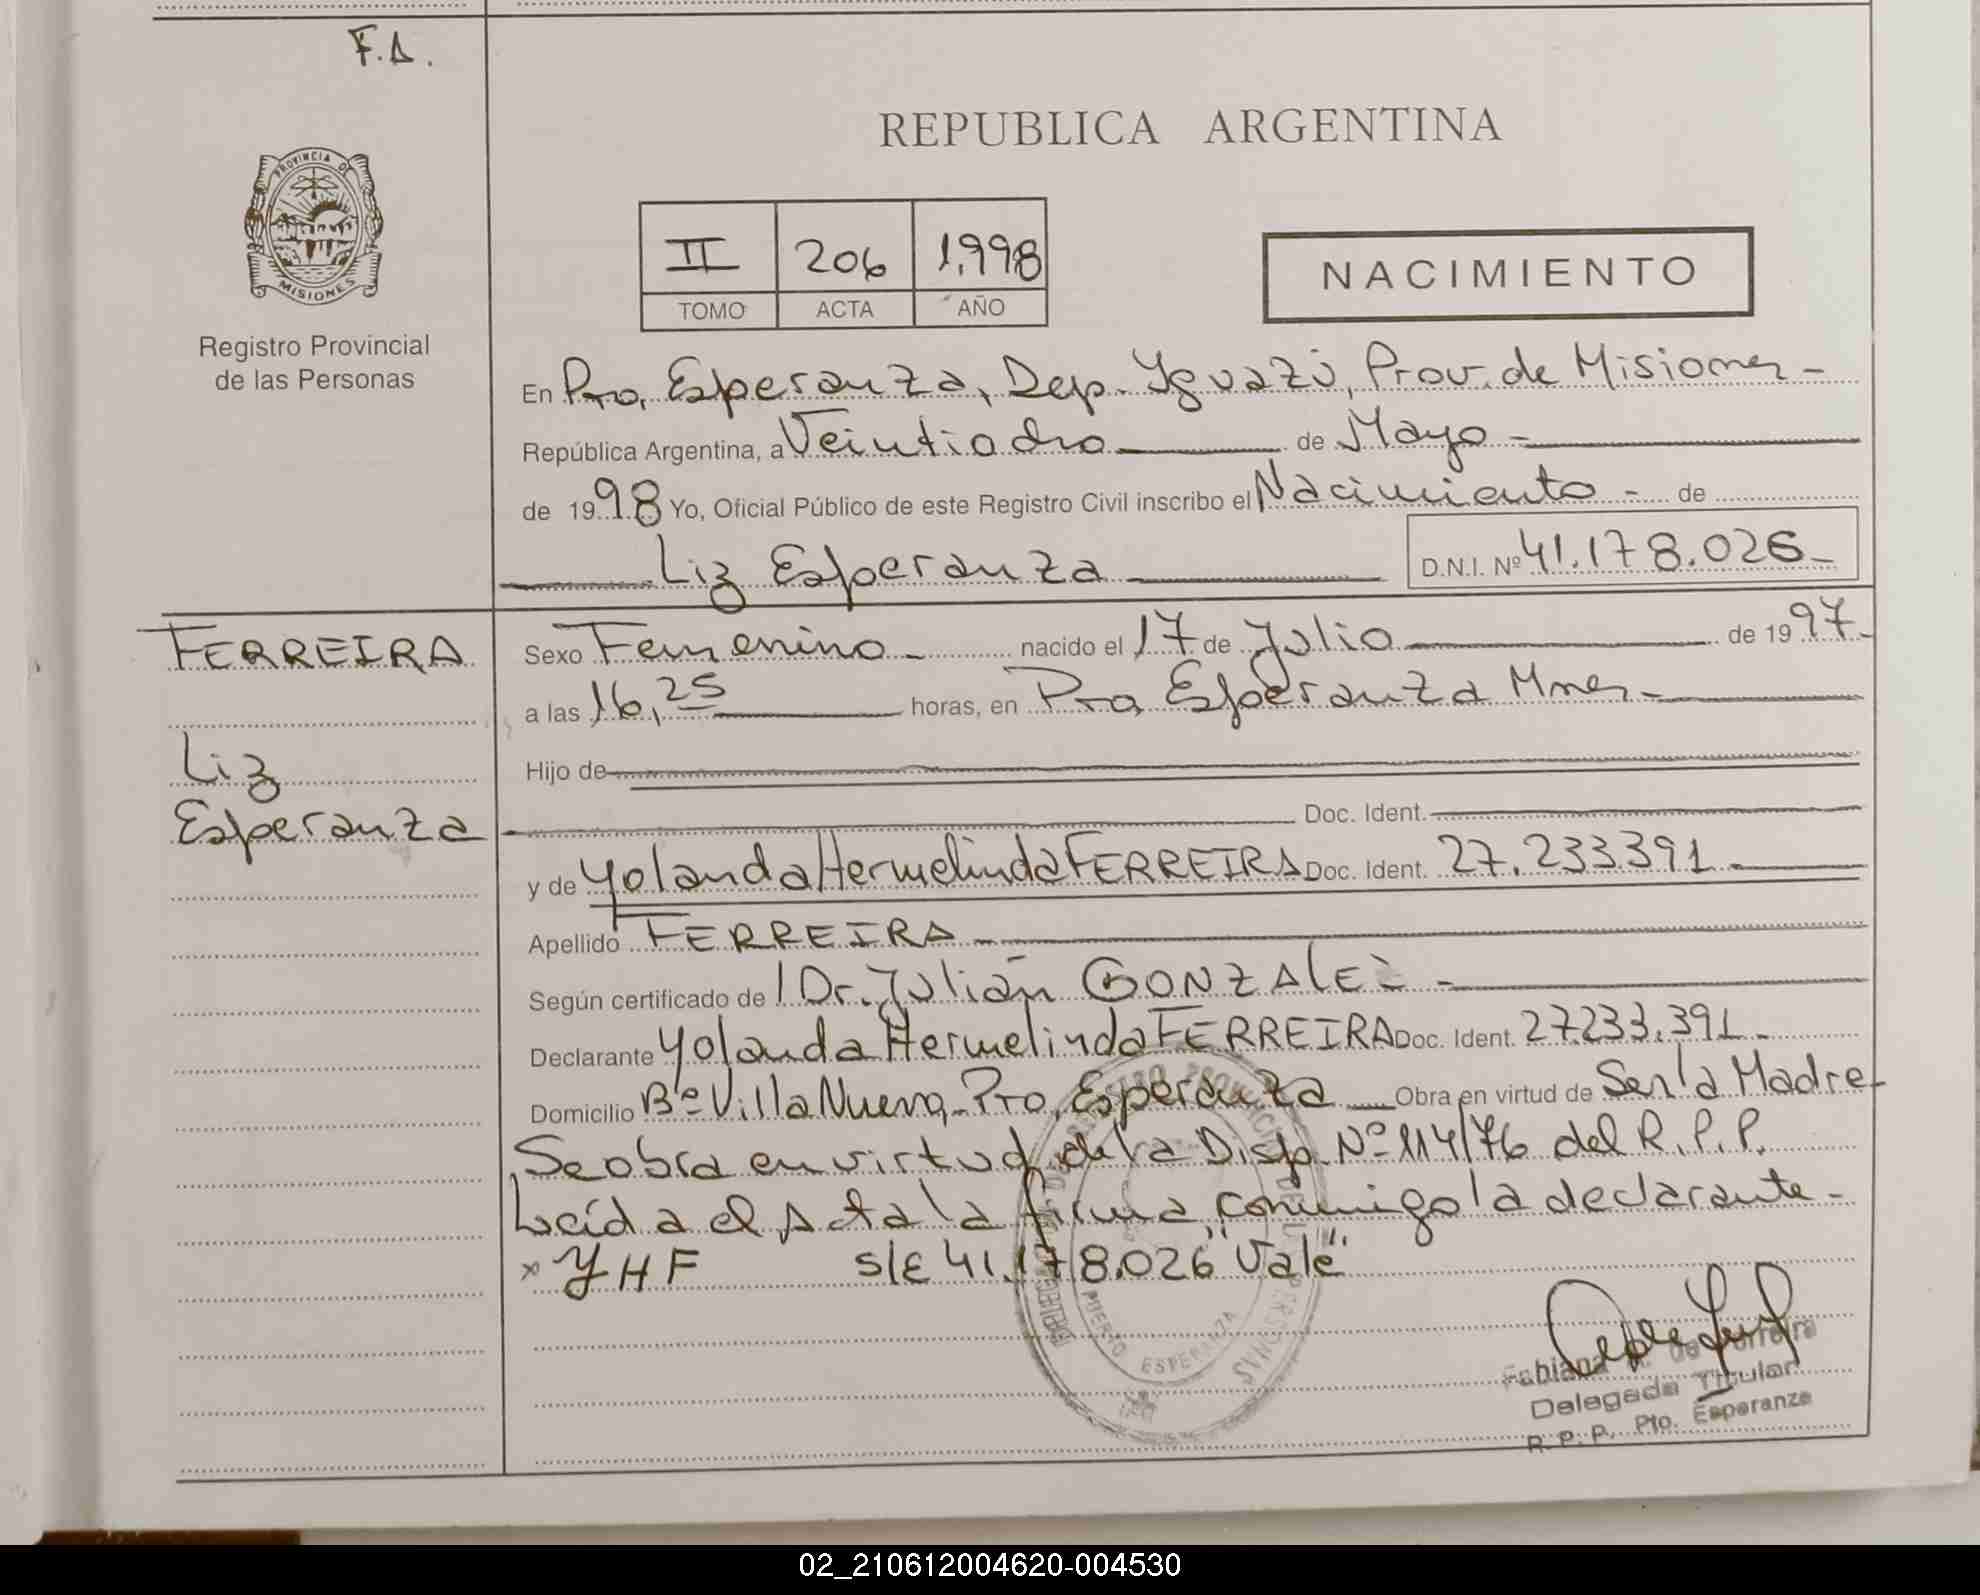 F.A.
REPUBLICA ARGENTINA
PROVINCIA DE
MISIONES
II 206 1.998
TOMO ACTA AÑO
NACIMIENTO
Registro Provincial
de las Personas
En Pto. Esperanza, Dep. Yguazú, Prov. de Misiones -
República Argentina, a Veintiocho de Mayo -
de 1998 Yo, Oficial Público de este Registro Civil inscribo el Nacimiento - de
Liz Esperanza - D.N.I. Nº 41.178.026 -
FERREIRA
Liz
Esperanza
Sexo Femenino - nacido el 17 de Julio de 1997 -
a las 16,25 horas, en Pto. Esperanza Mnes -
Hijo de
Doc. Ident.
y de Yolanda Hermelinda FERREIRA Doc. Ident. 27.233.391 -
Apellido FERREIRA -
Según certificado de Dr. Julián GONZALEZ -
Declarante Yolanda Hermelinda FERREIRA Doc. Ident. 27.233.391 -
Domicilio Bº Villa Nueva, Pto. Esperanza Obra en virtud de Ser la Madre -
Se obra en virtud de la Disp. Nº 114/76 del R.P.P.
Leída el Acta la firma conmigo la declarante -
x YHF s/E 41.178.026 "Vale"
PUERTO ESPERANZA
Fabiana de Ferreira
Delegada Titular
R.P.P. Pto. Esperanza
02_210612004620-004530